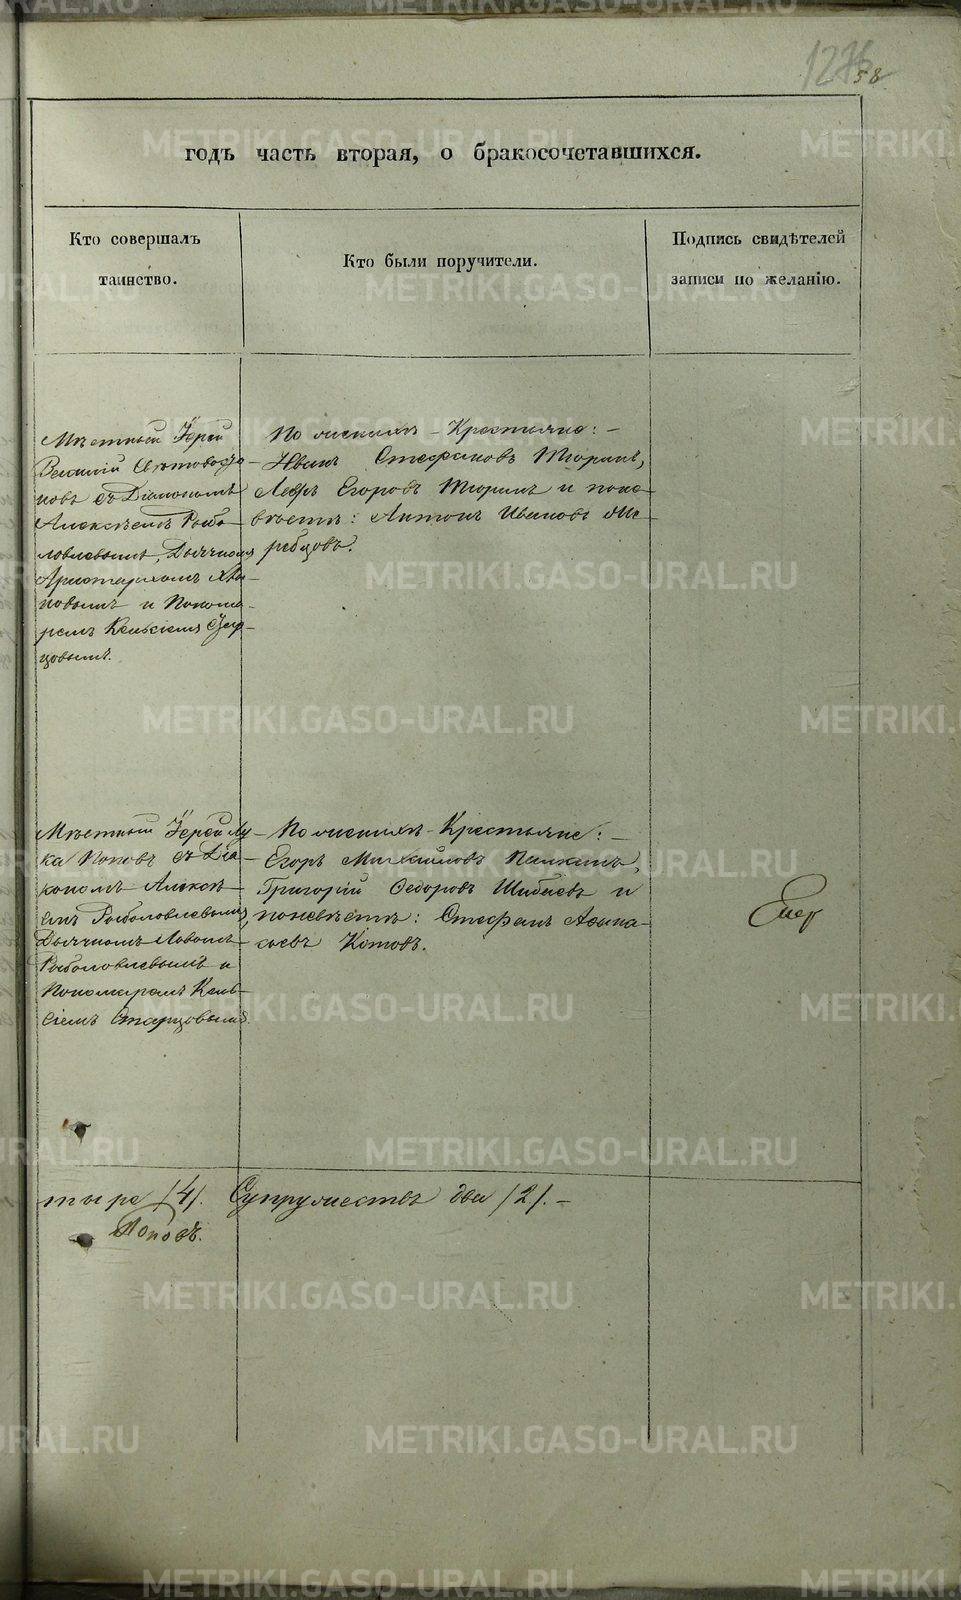 58
годъ часть вторая, о бракосочетавшихся.
Кто совершалъ
таинство.
Кто были поручители.
Подпись свидѣтелей
записи по желанію.
Мѣстный Іерей
съ Діакономъ
Алексѣемъ Рыбо-
ловлевымъ, Дьячкомъ
Аристархомъ
новымъ и Понома-
ремъ Кельсіемъ Стар-
цовымъ.
По женихѣ - Крестьяне: -
Иванъ Стефановъ Тюринъ,
Егоровъ Тюринъ и по не-
вѣстѣ: Антонъ Ивановъ Же-
ребцовъ.
Мѣстный Іерей Лу-
ка Поповъ съ Діа-
кономъ Алексѣ-
емъ Рыболовлевымъ,
Дьячкомъ Львомъ
Рыболовлевымъ и
Пономаремъ Кель-
сіемъ Старцовымъ.
По женихѣ - Крестьяне: -
Егоръ Михайловъ Палкинъ,
Григорій Федоровъ Шибаевъ и
по невѣстѣ: Стефанъ Афана-
сьевъ Котовъ.
тыре /4/. Супружествъ два /2/. -
Поповъ.
METRIKI.GASO-URAL.RU